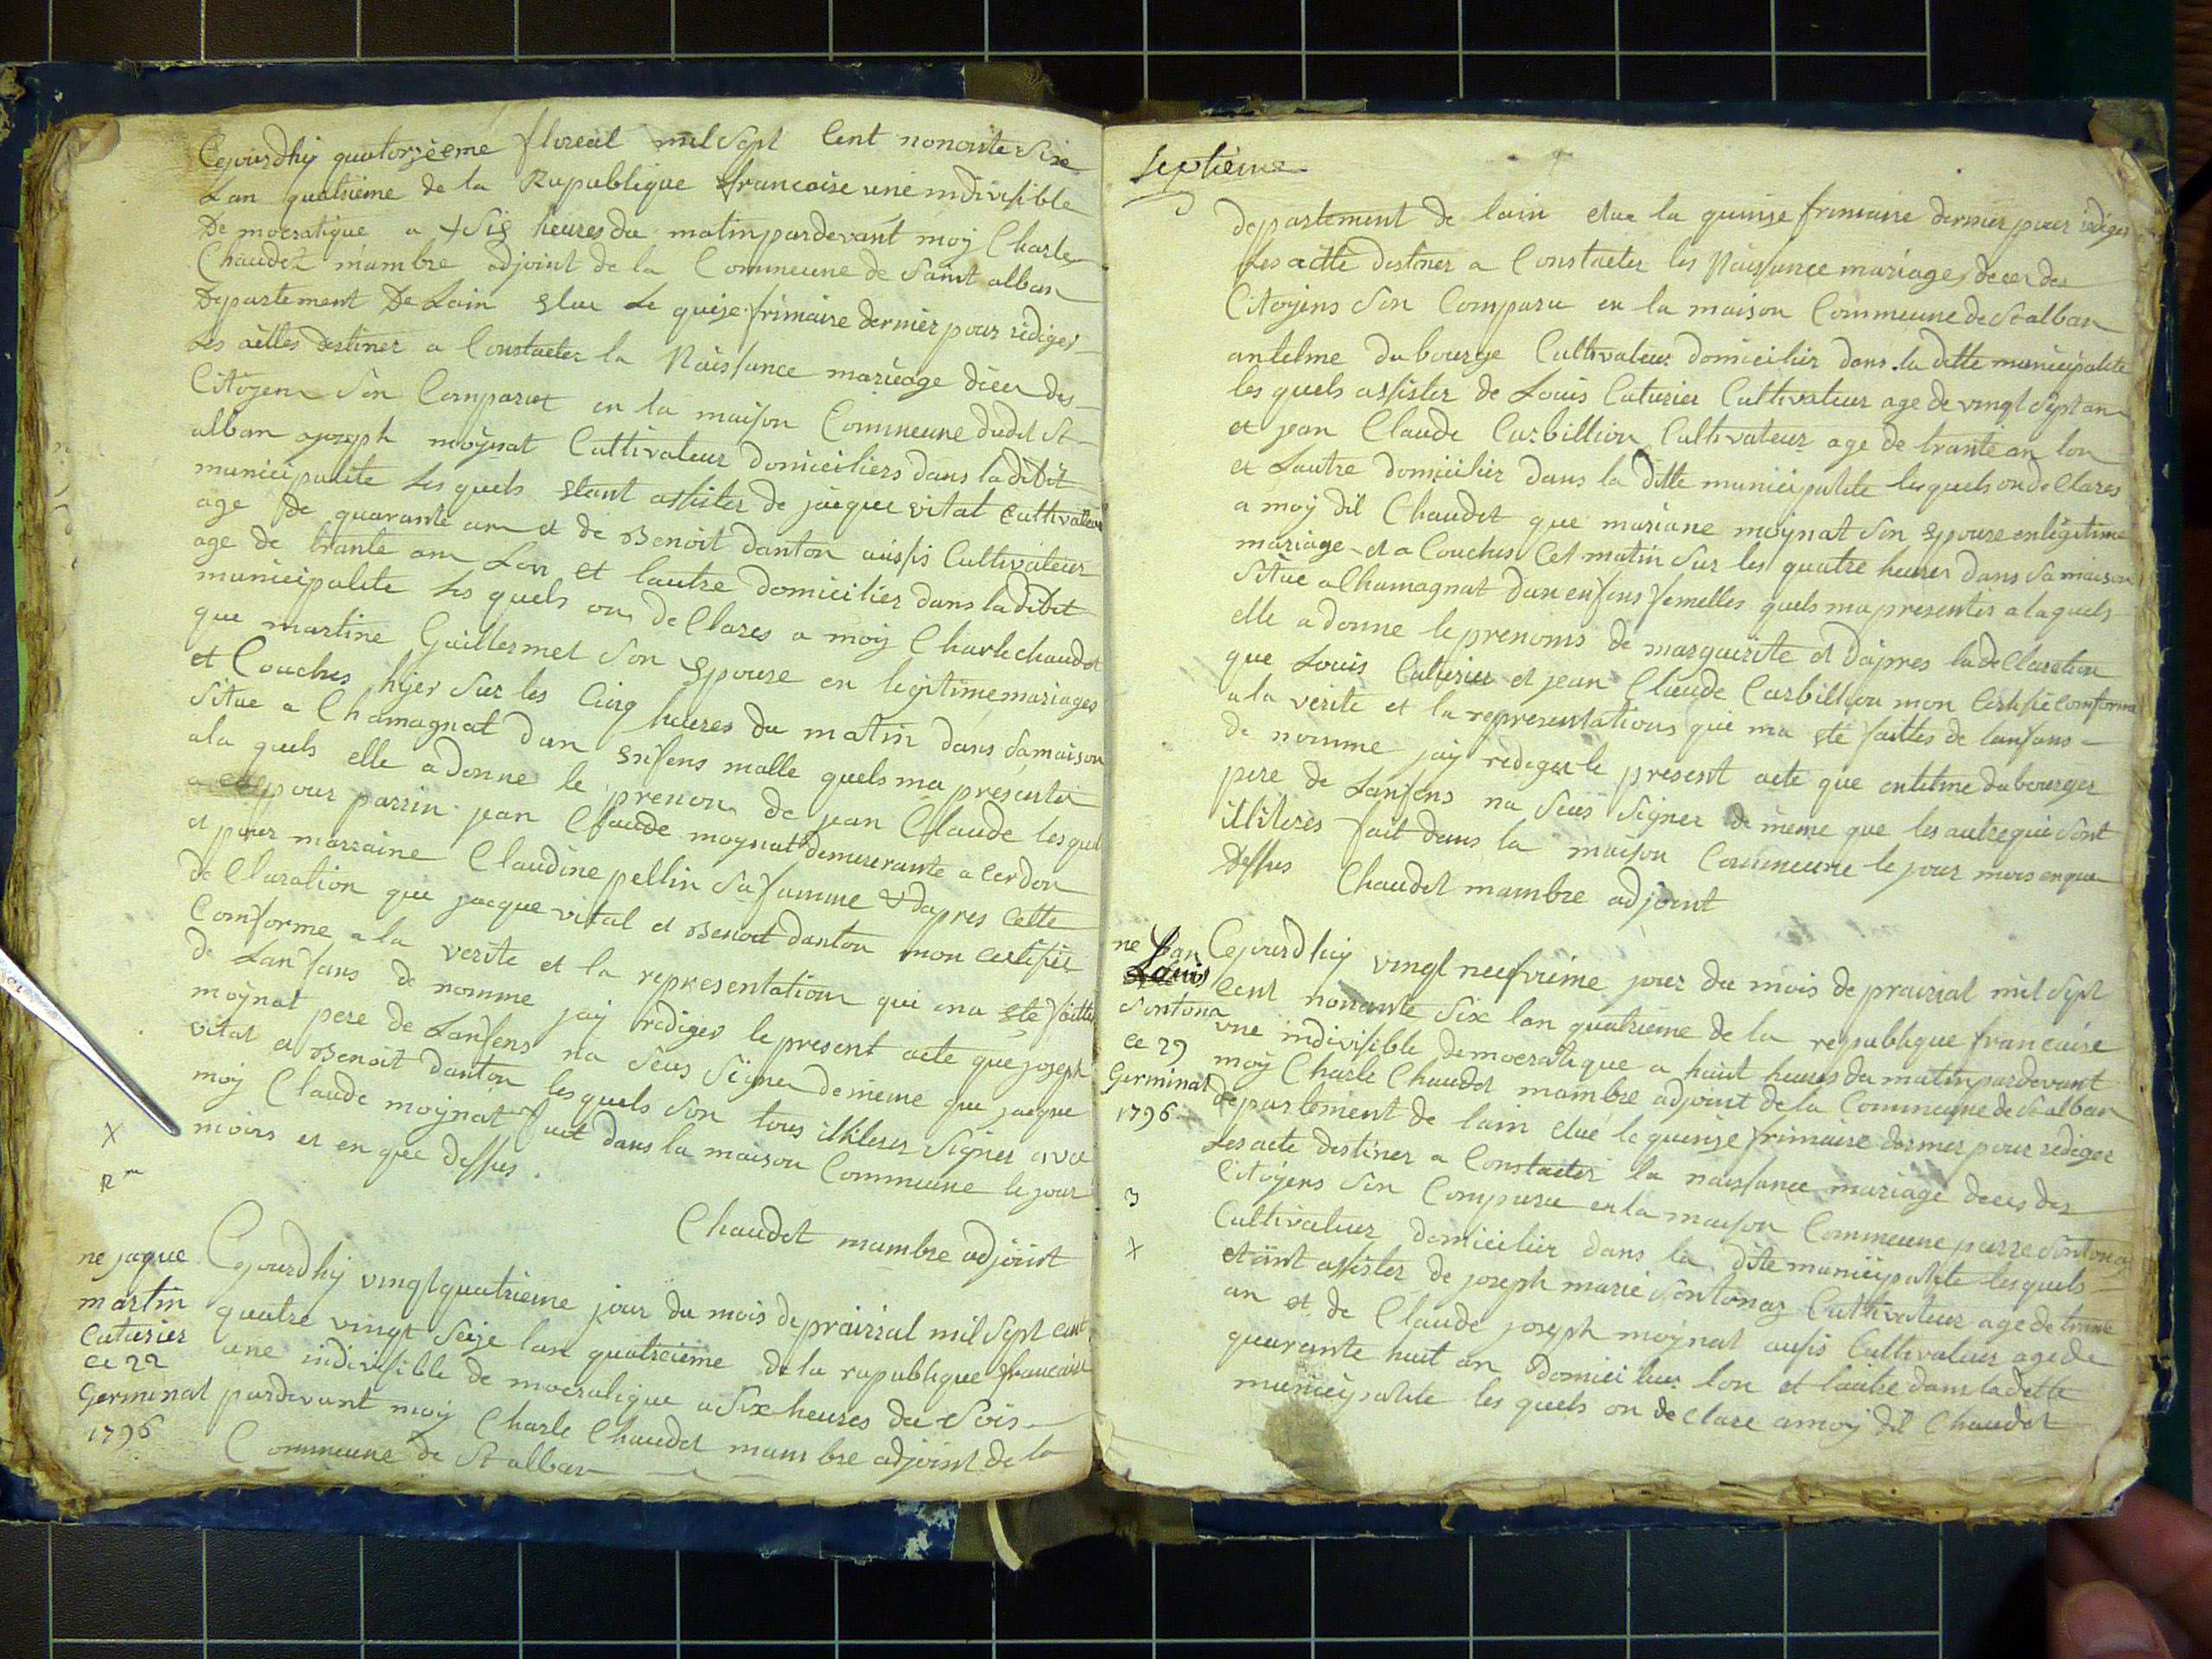 Cejourdhy quatorzieme floreal mil Sept Cent nonante Six
Lan quatrieme de la Rupublique francaise une indivisible
De mocratique a Sis heures du matin pardevant moy Charle
Chaudet mambre adjoint de la Commeune de Saint alban
Departement De Lain elue Le quise frimaire dernier pour rediger
Les actes destiner a Constaeter la Naissance mariage dices des
Citoyens Son Comparut en la maison Commeune dudit St
alban joseph moynat Cultivateur domiciliers dans laditt
municipalite Les quels etant assister de jacque vital Cultivateur
age de quarante an et de Benoit danton aussis Cultivateur
age de trante an Lon et lautre domicilier dans laditt
municipalite Les quels on de Clares a moy Charle chaudet
que martine Guillermet Son Epouse en legitime mariages
et Couches hyer Sur les Cinq heures du matin dans Samaison
Situe a Chamagnat dun enfens malle quels ma presenter
ala quels elle a donne le prenon de jean Claude lesquel
a pour parrin jean Claude moynat demeurante a Cerdon
et pour marraine Claudine pellin Sa famme & dapres Cette
de Claration que jacque vital et Benoit danton mon certifier
Comforme a la verite et la representation qui ma ete faitte
de Lanfans de nomme jay rediger le present acte que joseph
moynat pere de Lanfens na Seus Signer de meme que jacque
vital et Benoit danton les quels Son tous illiterer Signer avec
moy Claude moynat fait dans la maison Commeune le jour
mois et en que dessus.
Chaudet mambre adjoint
X
ne jaque
martin
Cuturier
ce 22
Germinal
1796
Cejourdhy vingt quatrieme jour du mois de prairial mil Sept Cent
quatre vingt Seize lan quatrieme de la rupublique francaise
une indivisible de mocratique a Six heures du Soir
pardevant moy Charle Chaudet mambre adjoint de la
Commeune de St alban
Septieme
departement de lain elue la quinse frimaire dernier pour rediger
Les actte destiner a Constaeter les Naissance mariages deces des
Citoyens Son Comparu en la maison Commeune de St alban
antelme dubourge Cultivateur domicilier dans la ditte municipalite
les quels assister de Louis Cuturier Cultivateur age de vingt Sept an
et jean Claude Curbillion Cultivateur age de trante an lon
et Lautre domicilier dans la ditte municipalite lesquels on de Clares
a moy dit Chaudet que mariane moynat Son Epouse en legitime
mariage et a Couches Cet matin Sur les quatre heures dans Samaison
Situe a Chamagnat dun enfens femelles quels ma presenter a laquels
elle a donne le prenoms de marguerite et dapres la de Claration
que Louis Cuturier et jean Claude Curbillion mon Certifie comforme
a la verite et la representations qui ma ete faittes de lanfans
de nomme jay redigeu le present acte que entelme dubourges
pere de Lanfens na Seus Signer de meme que les autre qui Sont
illiteres fait dans la maison Commeune le jour mois en que
dessus Chaudet mambre adjoint
ne jean
Louis
Sontona
ce 29
Germinal
1796
3
X
Cejourdhuy vingt neufvieme jour du mois de prairial mil Sept
Cent nonante Six lan quatrieme de la republique francaise
une indivisible democratique a huit heures du matin pardevant
moy Charle Chaudet mambre adjoint de la Commeune de St alban
departement de lain elue le quinse frimaire dernier pour rediger
Les acte destiner a Constaeter la naissance mariage deces des
Citoyens Son Comparu en la maison Commeune pierre Sontonaz
Cultivateur domicilier dans la dite municipalite lesquels
etant assister de joseph marie Sontonaz Cultivateur age de trante
an et de Claude joseph moynat aussis Cultivateur age de
quarante huit an domicilier lon et lautre dans la dette
municipalite les quels on de clare a moy dit Chaudet